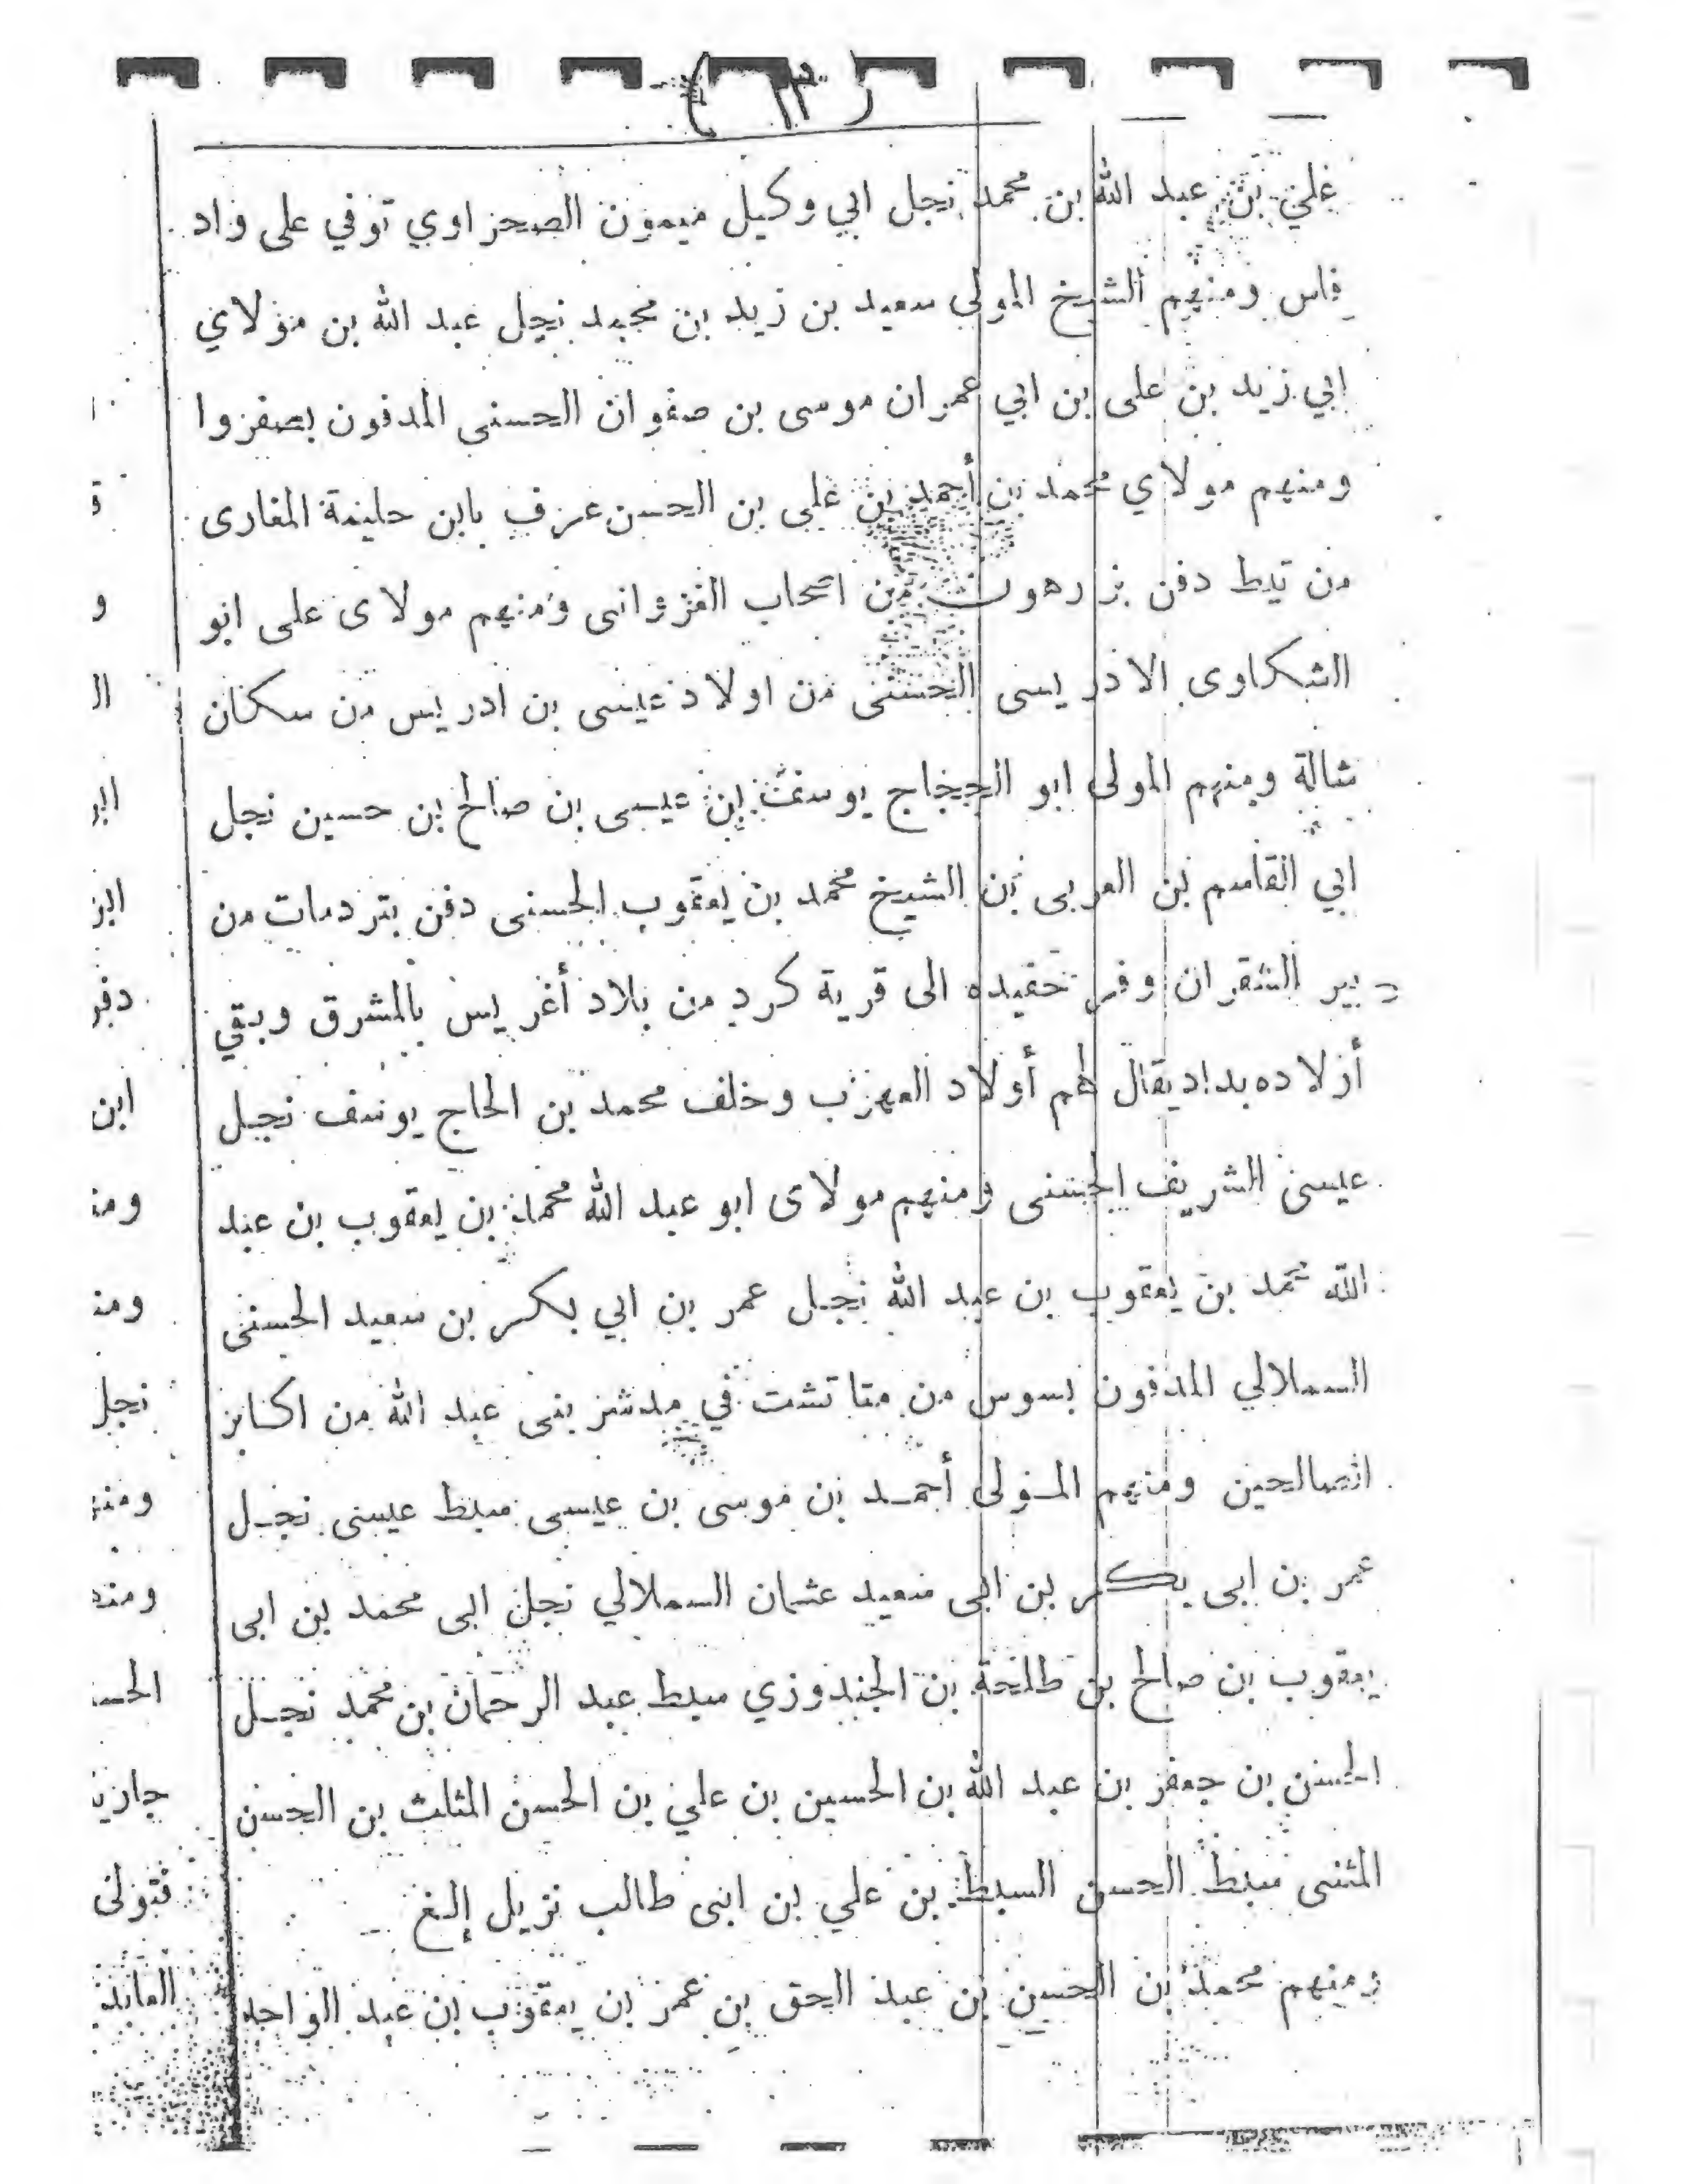 (٦٣)
علي بن عبد الله بن محمد نجل ابي وكيل ميمون الصحراوي توفي على واد
فاس ومنهم الشيخ المولى سعيد بن زيد بن محمد نجل عبد الله بن مولاي
ابي زيد بن على بن ابي عمران موسى بن صفوان الحسنى المدفون بصفروا
ومنهم مولاي محمد بن أحمد بن على بن الحسن عرف بابن حليمة الغارى
من تيط دفن بزرهون من اصحاب الغزوانى ومنهم مولاى على ابو
الشكاوى الادريسى الحسنى من اولاد عيسى بن ادريس من سكان
شالة ومنهم المولى ابو الحجاج يوسف بن عيسى بن صالح بن حسين نجل
ابي القاسم بن العربى بن الشيخ محمد بن يعقوب الحسنى دفن بتردمات من
بير الشقران وفر حفيده الى قرية كرد من بلاد أغريس بالمشرق وبقي
أولاده بداد يقال لهم أولاد العهزب وخلف محمد بن الحاج يوسف نجل
عيسى الشريف الحسنى ومنهم مولاى ابو عبد الله محمد بن يعقوب بن عبد
الله محمد بن يعقوب بن عبد الله نجل عمر بن ابي بكر بن سعيد الحسنى
السملالي المدفون بسوس من متاتشت في مدشر بنى عبد الله من اكابر
الصالحين ومنهم المولى أحمد بن موسى بن عيسى سبط عيسى نجل
عمر بن ابى بكر بن ابى سعيد عثمان السملالي نجل ابى محمد بن ابى
يعقوب بن صالح بن طلحة بن الجندوزي سبط عبد الرحمان بن محمد نجل
الحسن بن جعفر بن عبد الله بن الحسين بن علي بن الحسن المثلث بن الحسن
المثنى سبط الحسن السبط بن علي بن ابى طالب نزيل إلغ
ومنهم محمد بن الحسين بن عبد الحق بن عمر بن يعقوب بن عبد الواحد